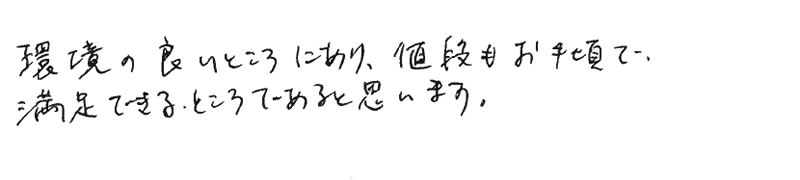 環境の良いところにあり、値段もお手頃で、
満足できるところであると思います。